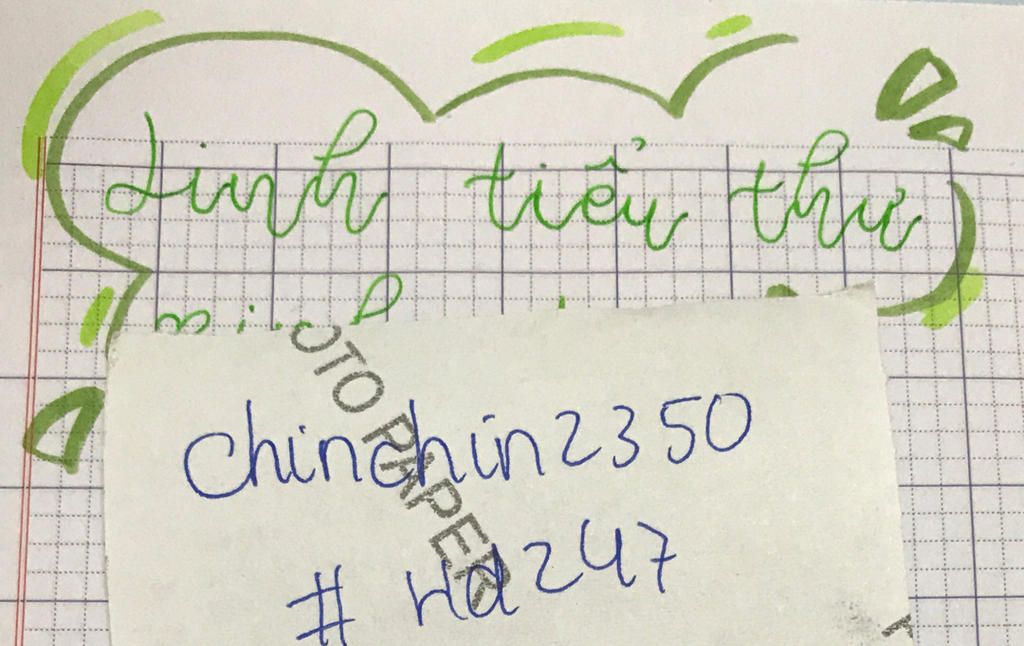 Linh tiểu thư
chinchin2350
# Hd247
OTO PAPER